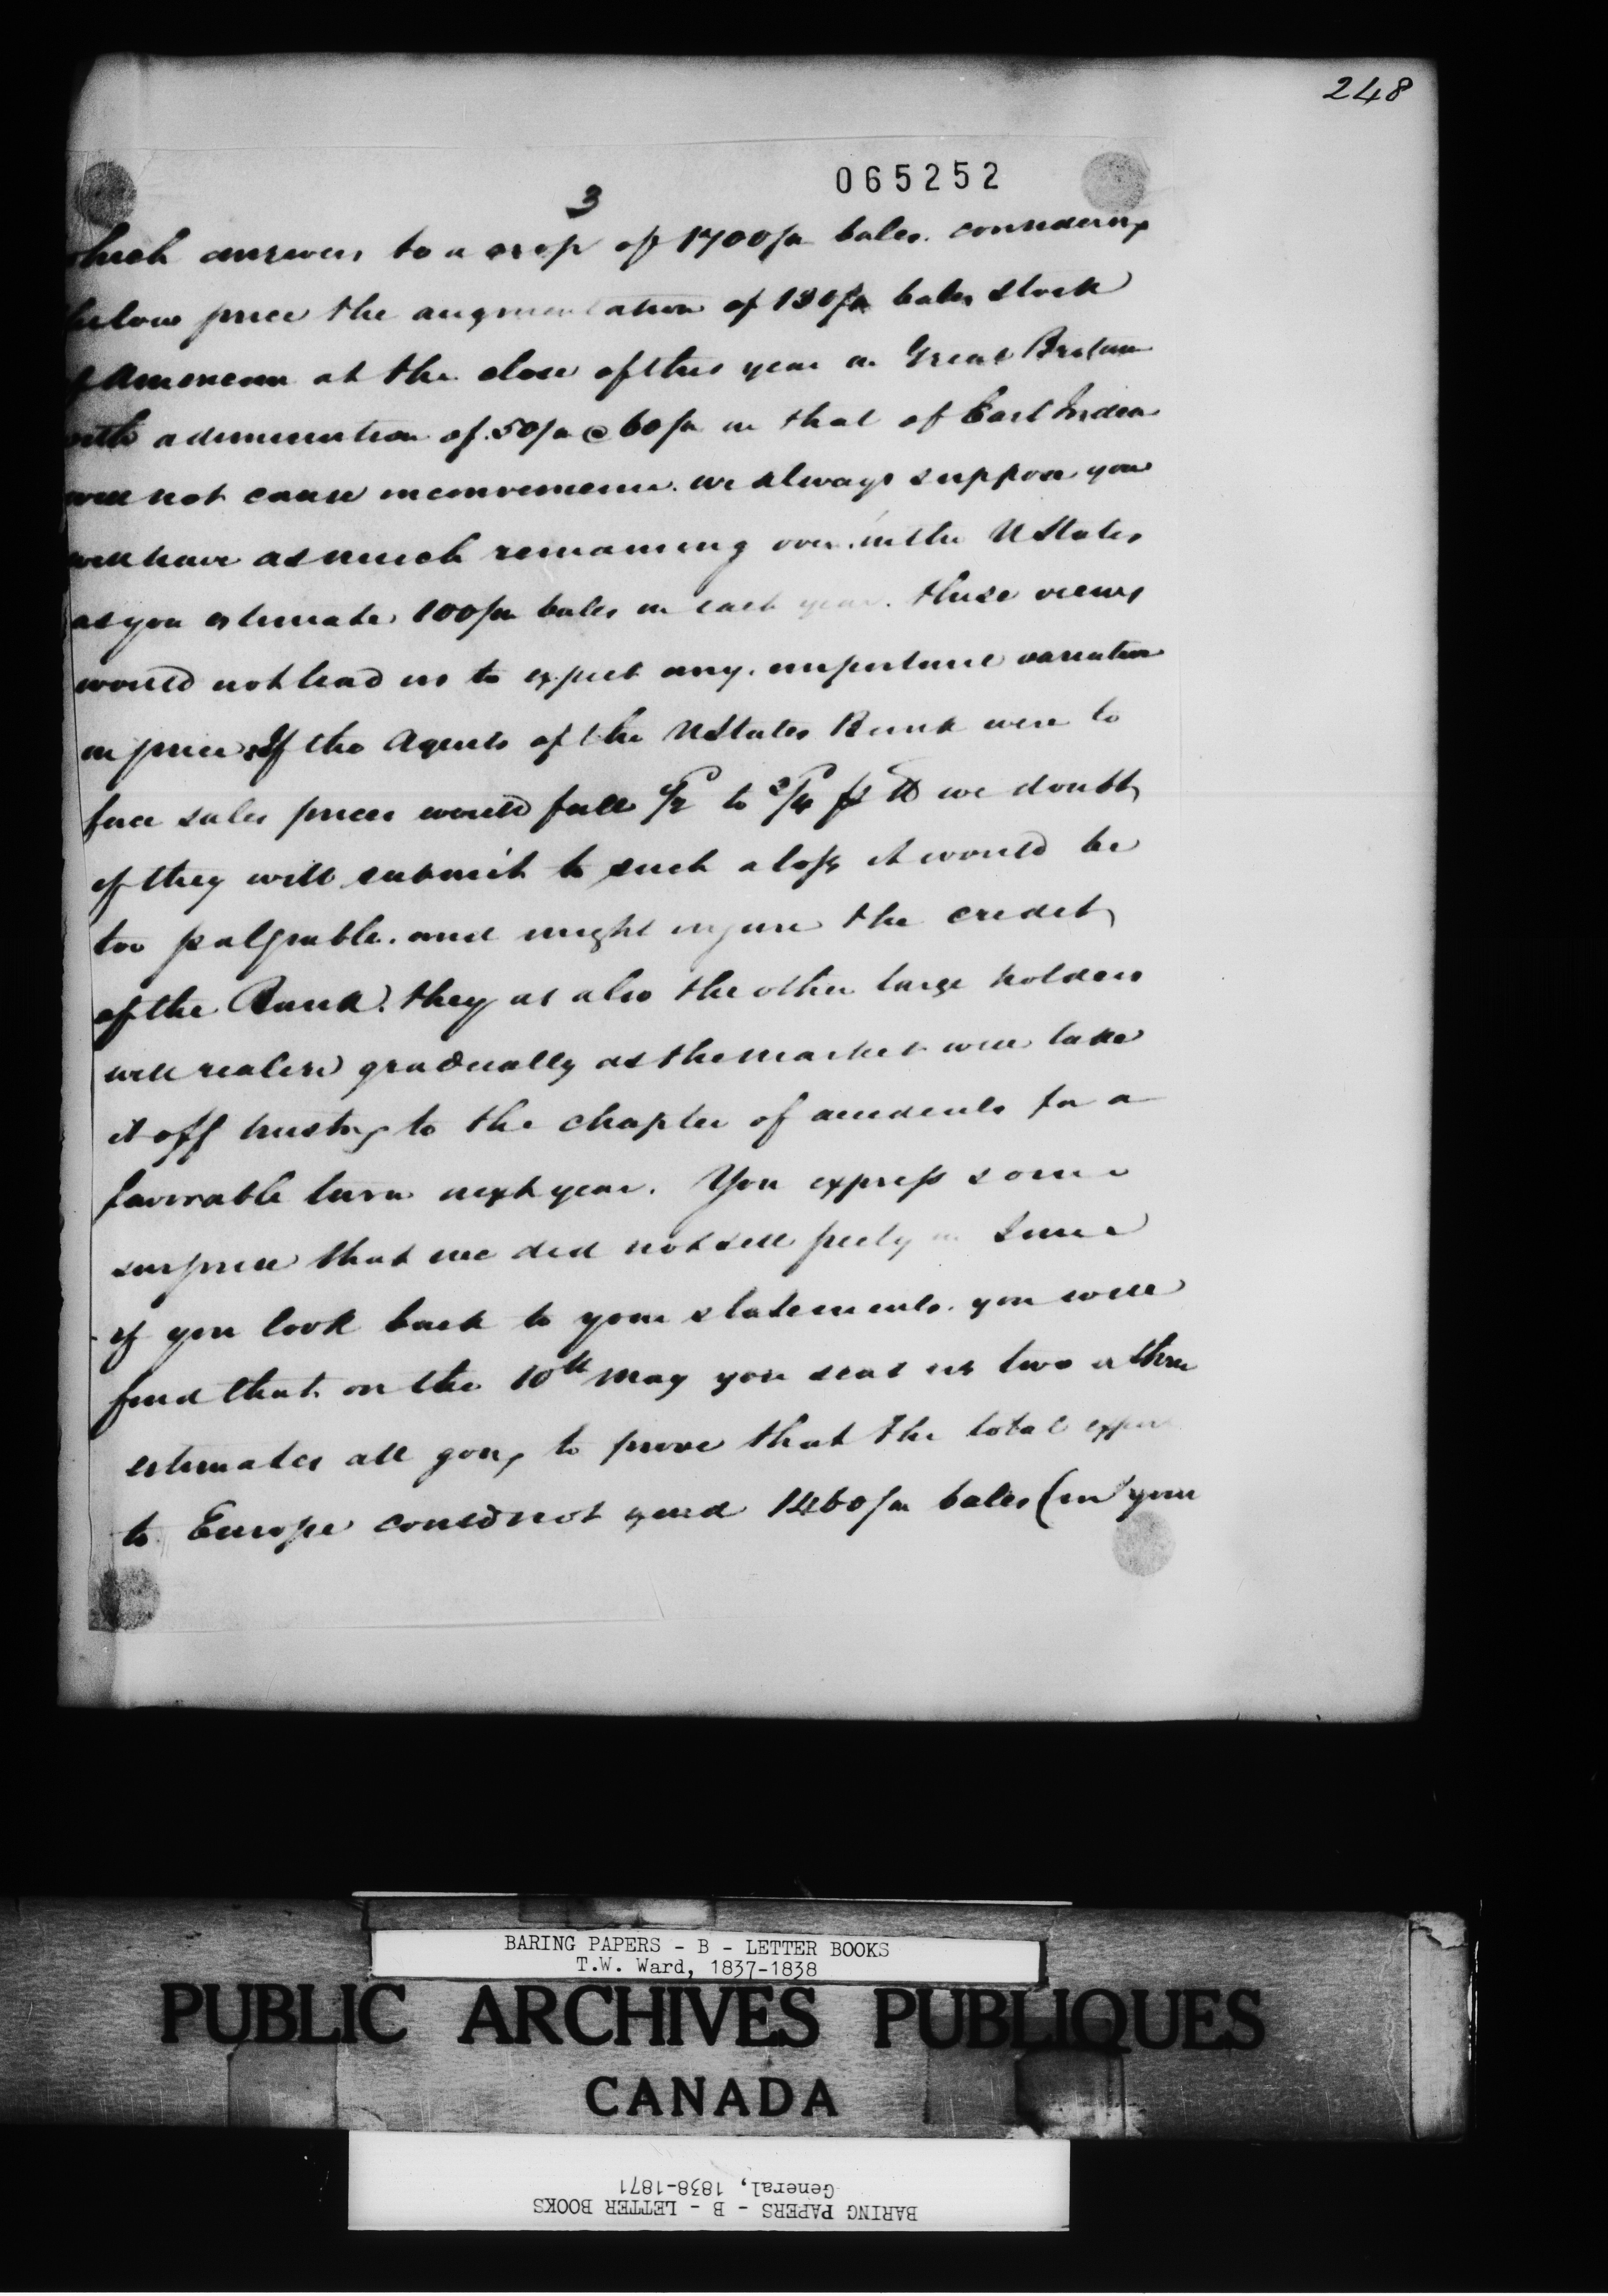 248
065252
3
which answers to a crop of 1700/m bales. considering
the low price the augmentation of 130/m bales stock
of American at the close of this year in Great Britain
with a diminution of 50/m @ 60/m in that of East India
will not cause inconvenience. we always suppose you
will have as much remaining over in the UStates
as you estimate 100/m bales in each year. these views
would not lead us to expect any important variation
in price If the Agents of the UStates Bank were to
force sales prices would fall 1/2 to 3/4 we doubt
if they will submit to such a loss it would be
too palpable. and might injure the credit
of the Bank. they as also the other large holders
will realise gradually as the market will take
it off trusting to the chapter of accidents for a
favorable turn next year. You express some
surprise that we did not sell freely in June
if you look back to your statements you will
find that on the 10th May you sent us two or three
estimates all going to prove that the total export
to Europe could not exceed 1460/m bales (in your
BARING PAPERS - B - LETTER BOOKS
T.W. Ward, 1837-1838
PUBLIC ARCHIVES PUBLIQUES
CANADA
BARING PAPERS - B - LETTER BOOKS
General, 1838-1871